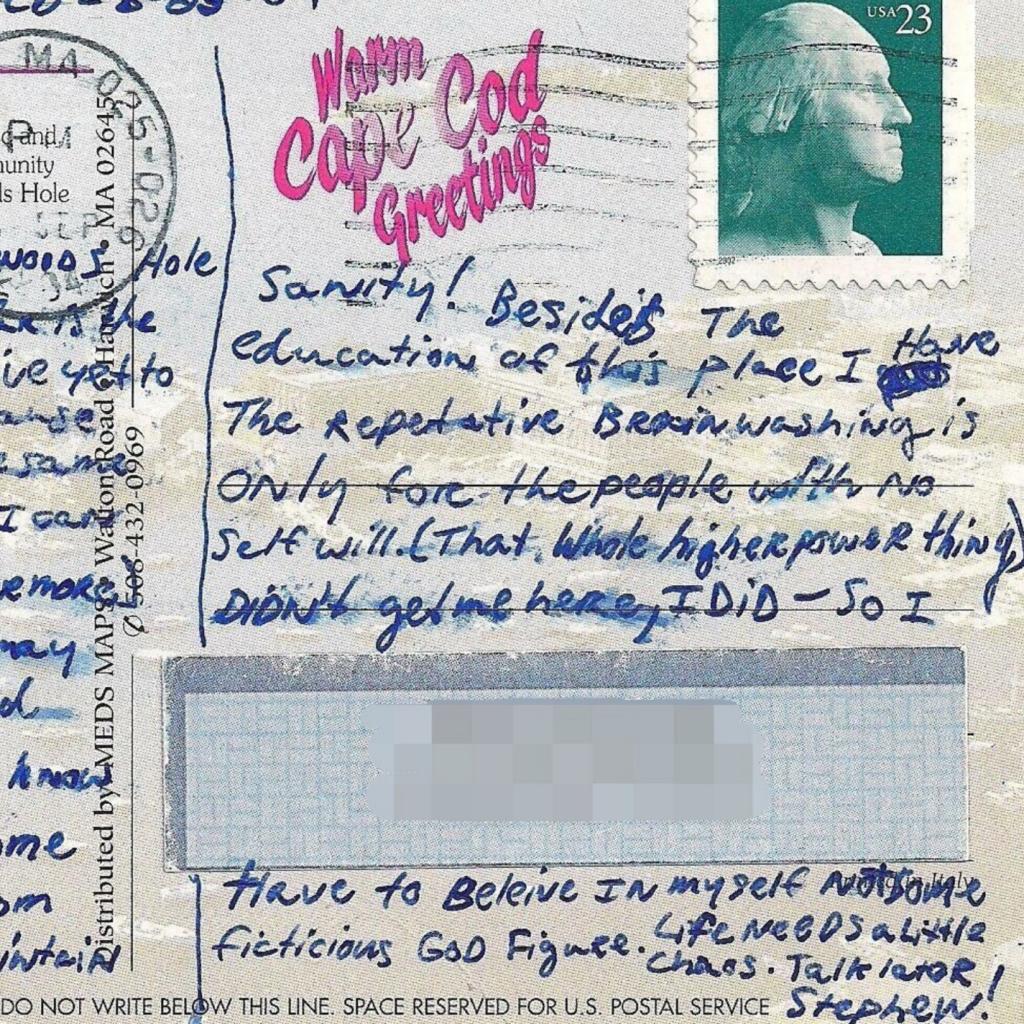 USA 23
2002
MA 025-026
P.M
SEP
Warm
Cape Cod
Greetings
and
unity
ls Hole
Woods Hole
is the
ive yet to
ause
same
I can
more
may
know
ome
om
intain
Distributed by MEDS MAPS • Walton Road • Harwich • MA 02645
508-432-0969
Sanity! Besides The
education of this place I Have
The Repetative Brainwashing is
Only fore the people with no
Self will. (That Whole higher power thing)
DIDN't get me here, I DID - So I
Have to Beleive IN myself Not Some
ficticious GOD Figure. Life NEEDS a Little
Chaos. Talk later!
Stephen!
in Italy
DO NOT WRITE BELOW THIS LINE. SPACE RESERVED FOR U.S. POSTAL SERVICE